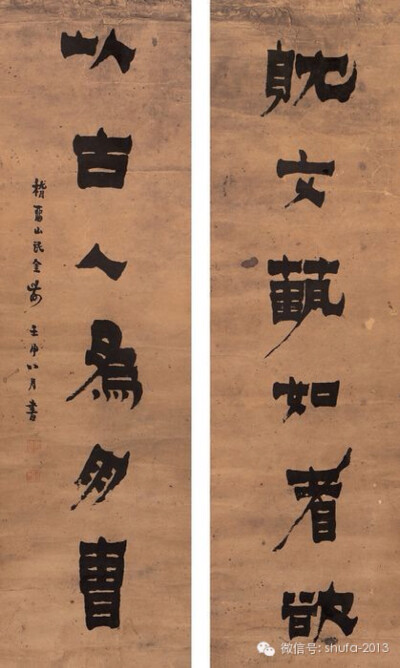 躭文藝如耆欲
以古人為朋曹
稽留山民金農 壬申八月書
微信号: shufa-2013